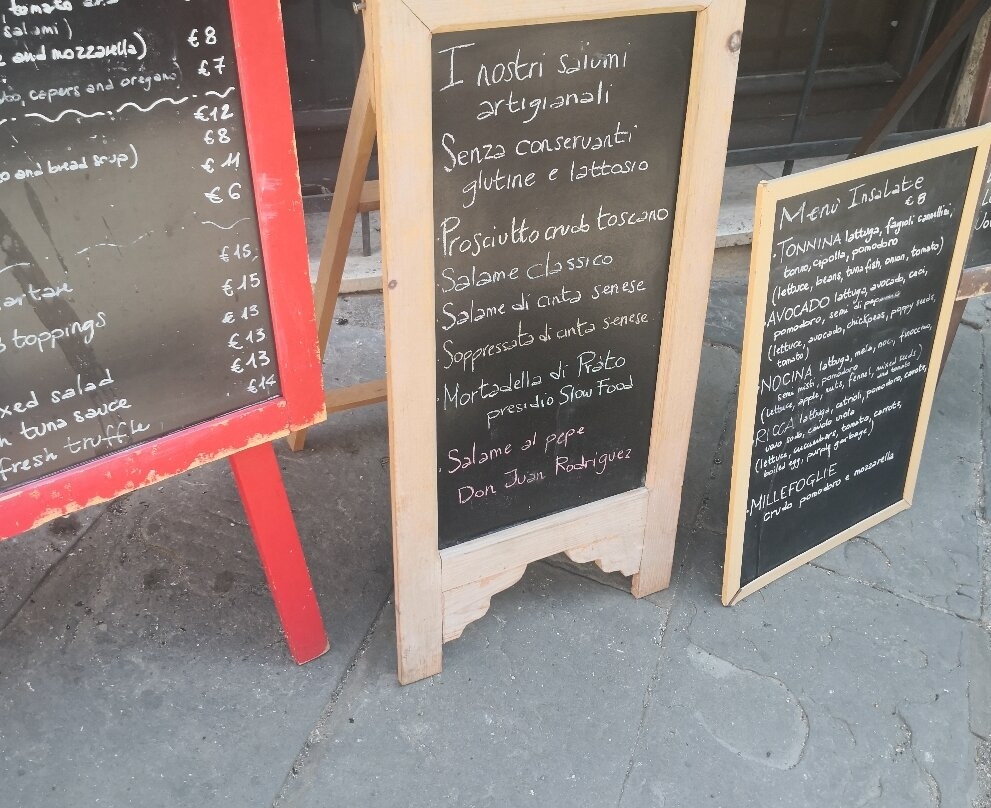 tomato and
salami)
and mozzarella)
€8
€7
, capers and oregano)
€12
€8
€11
o and bread soup)
€6
€15,
€15
artare
€13
s toppings
€13
€13
ixed salad
€14
n tuna sauce
fresh truffle
I nostri salumi
artigianali
Senza conservanti
glutine e lattosio
·Prosciutto crudo toscano
·Salame classico
·Salame di cinta senese
·Soppressata di cinta senese
·Mortadella di Prato
presidio Slow Food
·Salame al pepe
Don Juan Rodriguez
Menù Insalate
€8
·TONNINA lattuga, fagioli cannellini,
tonno, cipolla, pomodoro
(lettuce, beans, tuna fish, onion, tomato)
·AVOCADO lattuga, avocado, ceci,
pomodoro, semi di papavero
(lettuce, avocado, chickpeas, poppy seeds,
tomato)
·NOCINA lattuga, mela, noci, finocchio,
semi misti, pomodoro
(lettuce, apple, nuts, fennel, mixed seeds
and tomato)
·RICCA lattuga, cetrioli, pomodoro, carote,
uovo sodo, cavolo viola
(lettuce, cucumbers, tomato, carrots,
boiled egg, purple garbage)
·MILLEFOGLIE
crudo pomodoro e mozzarella